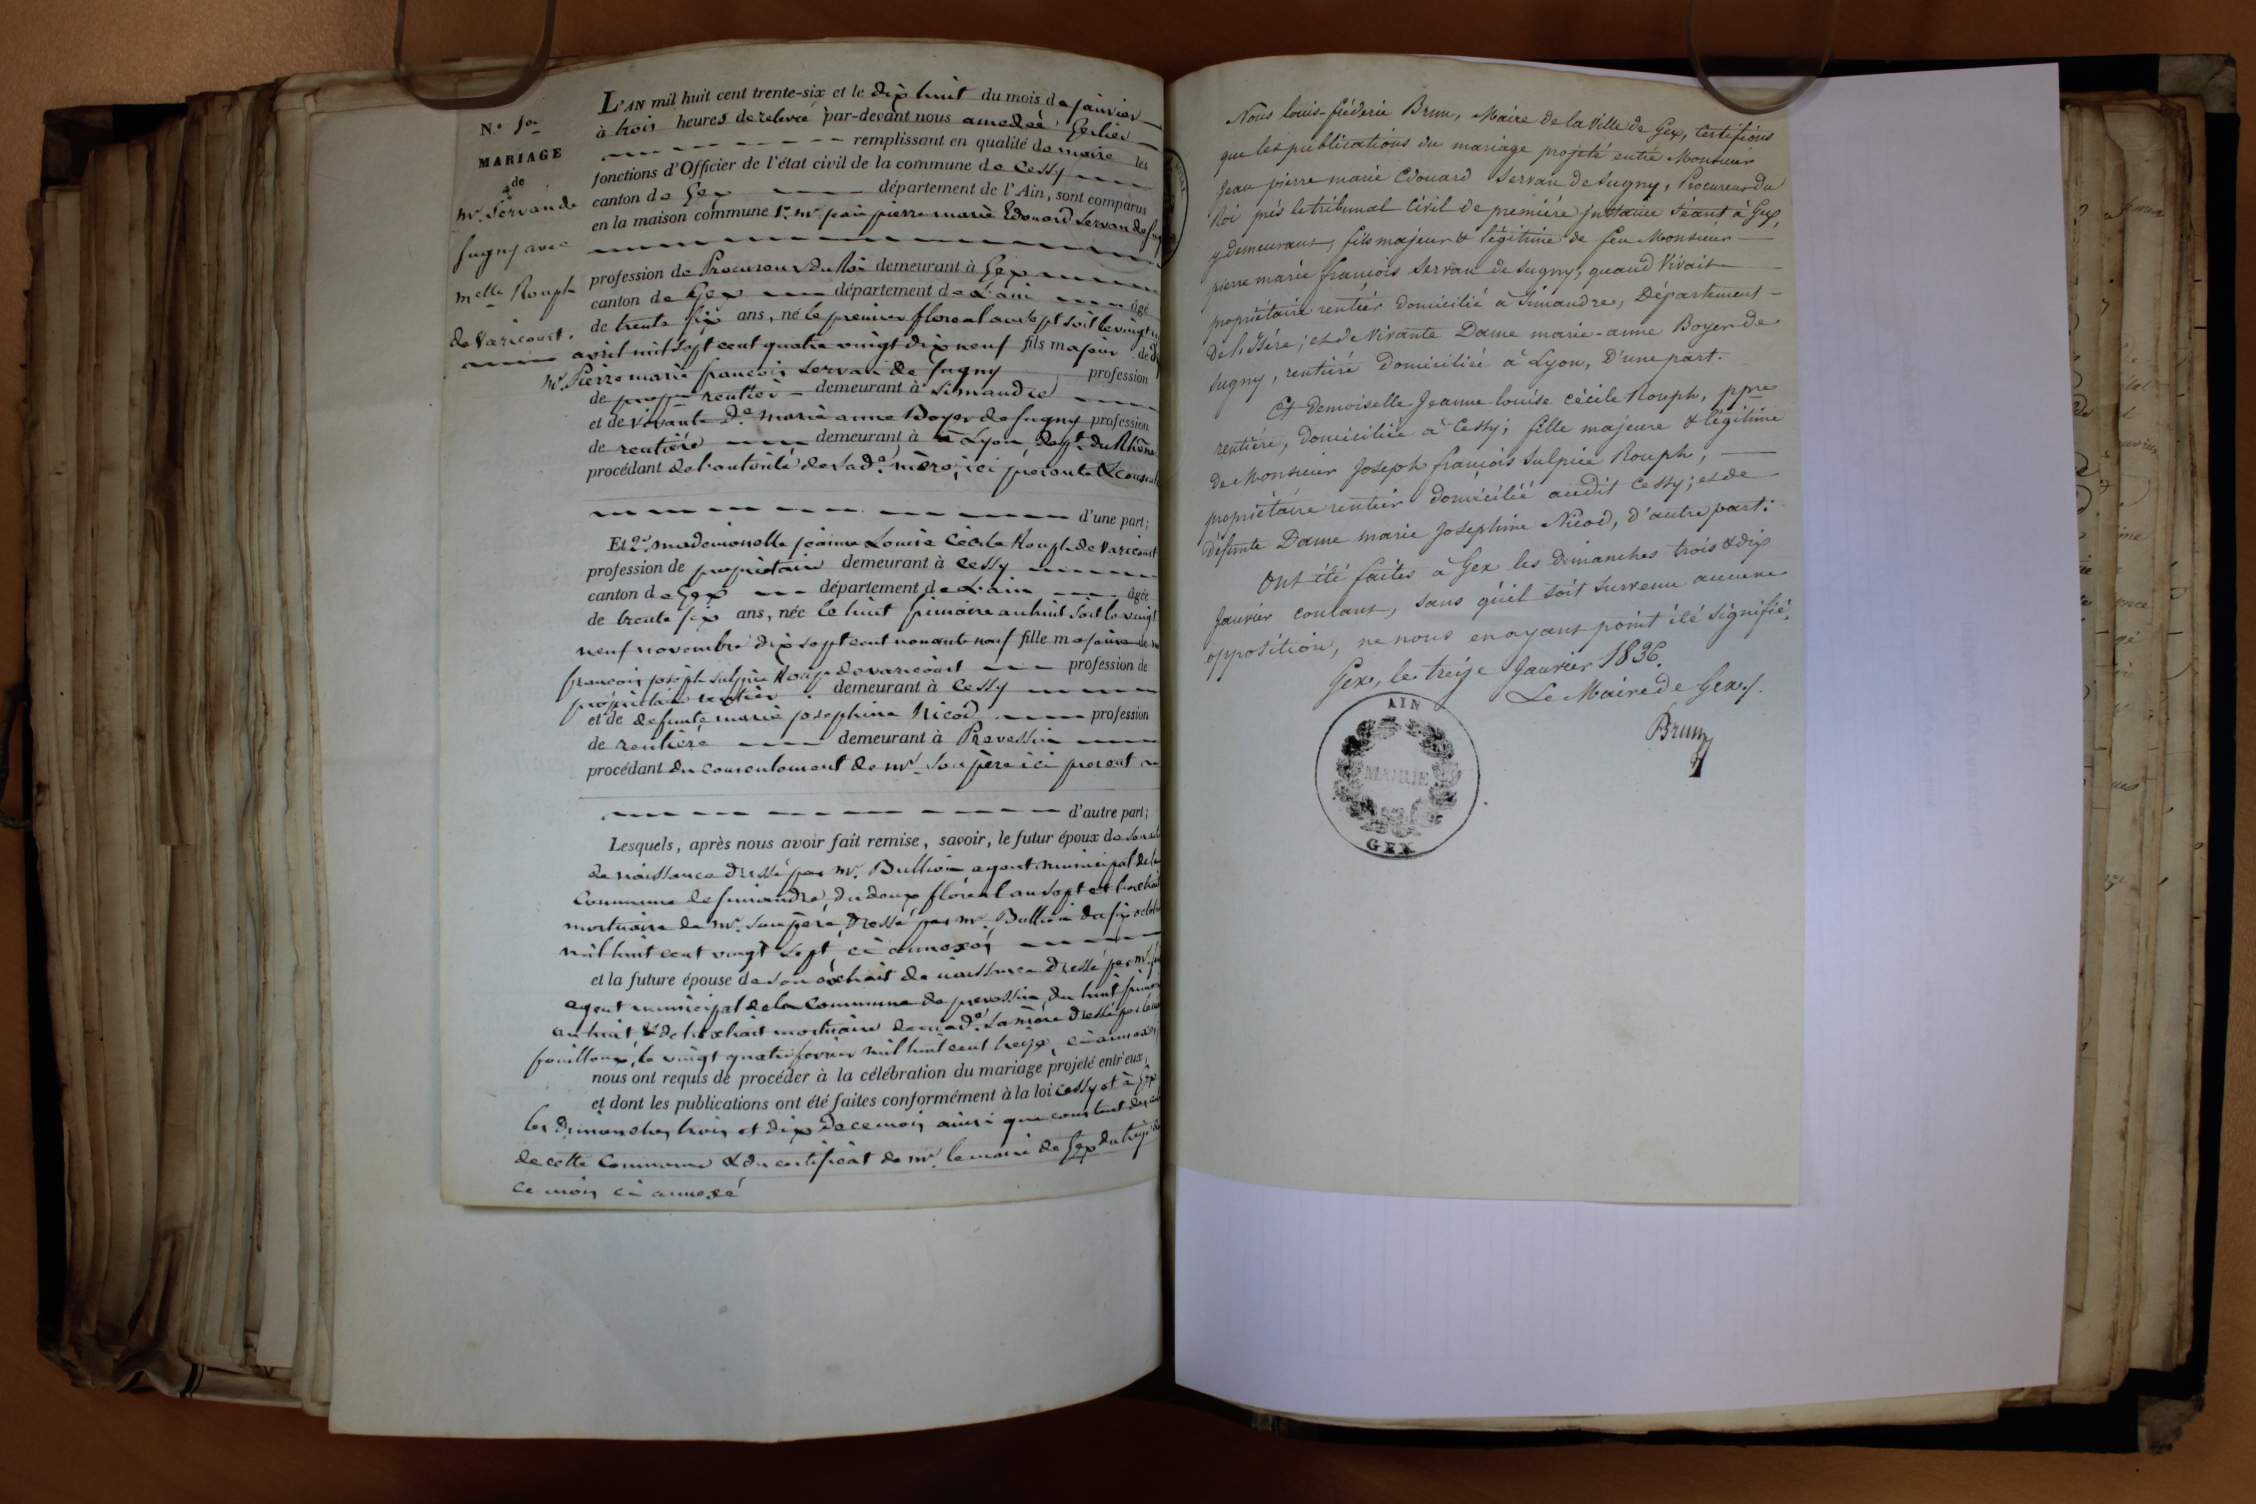 N.º 1er
MARIAGE
de
mr. Servan de
Sugny avec
melle Rouph
de Varicourt.
L'AN mil huit cent trente-six et le dix huit du mois de janvier
à trois heures de relevée par-devant nous amedée Gerlier
remplissant en qualité de maire les
fonctions d'Officier de l'état civil de la commune de Cessy
canton de Gex département de l'Ain, sont comparus
en la maison commune 1º mr. jean pierre marie Edouard Servan de Sugny
profession de Procureur du Roi demeurant à Gex
canton de Gex département de L'ain âgé
de trente six ans, né le premier floréal an sept soit le vingt
avril mil sept cent quatre vingt dix neuf fils majeur de
mr. Pierre marie françois Servan de Sugny profession
de propre rentier demeurant à Simandre
et de vivante de. marie anne Boyer de Sugny profession
de rentière demeurant à à Lyon, dept. du Rhône
procédant de l'autorité de sa de. mère, ici presente &
d'une part;
Et 2º. mademoiselle jeanne Louise Cécile Rouph de Varicourt
profession de propriétaire demeurant à Cessy
canton de Gex département de L'ain âgée
de trente six ans, née le huit frimaire an huit soit le vingt
neuf novembre dix sept cent nonante neuf fille majeure de
françois joseph sulpice Rouph de varicourt profession de
propriétaire rentier demeurant à Cessy
et de defunte marie josephine Nicod profession
de rentière demeurant à Prevessin
procédant du consentement de mr. son père ici present
d'autre part;
Lesquels, après nous avoir fait remise, savoir, le futur époux de son
de naissance dressé par mr. Bullion agent municipal de la
Commune de simandre, du deux floréal an sept et l'extrait
mortuaire de mr. son père, Dressé par mr. Bullion du six octobre
mil huit cent vingt sept, ci annexés
et la future épouse de son extrait de naissance dressé par mr.
agent municipal de la Commune de prevessin, du huit
an huit & de l'extrait mortuaire de made. sa mère dressé par
fouilloux, le vingt quatre fevrier mil huit cent treize, ci annexés
nous ont requis de procéder à la célébration du mariage projeté entr'eux,
et dont les publications ont été faites conformément à la loi Cessy et à Gex
les dimanches trois et dix de ce mois ainsi que constant des
de cette Commune & du certificat de mr. le maire de Gex du treize
ce mois ci annexé
Nous louis-fréderic Brun, Maire de la Ville de Gex, Certifions
que les publications du mariage projeté entre Monsieur
Jean pierre marie Edouard Servan de Sugny, Procureur du
Roi près le tribunal Civil de première instance séant à Gex,
y demeurant, fils majeur & légitime de feu Monsieur
pierre marie françois Servan de Sugny, quand Vivait
propriétaire rentier domicilié à Simandre, Département
de l'Isére; et de Vivante Dame marie-anne Boyer de
Sugny, rentière domiciliée à Lyon, D'une part.
Et Demoiselle Jeanne louise cécile Rouph, ppre
rentière, domiciliée à Cessy; fille majeure & légitime
de Monsieur Joseph françois Sulpice Rouph,
propriétaire rentier domicilié audit Cessy; et de
défunte Dame marie Josephine Nicod, D'autre part.
Ont été faites à Gex les dimanches trois & dix
Janvier coulant, sans qu'il soit survenu aucune
opposition, ne nous en ayant point été signifié.
Gex, le treize Janvier 1836.
Le Maire de Gex,
Brun
AIN
MAIRIE
GEX